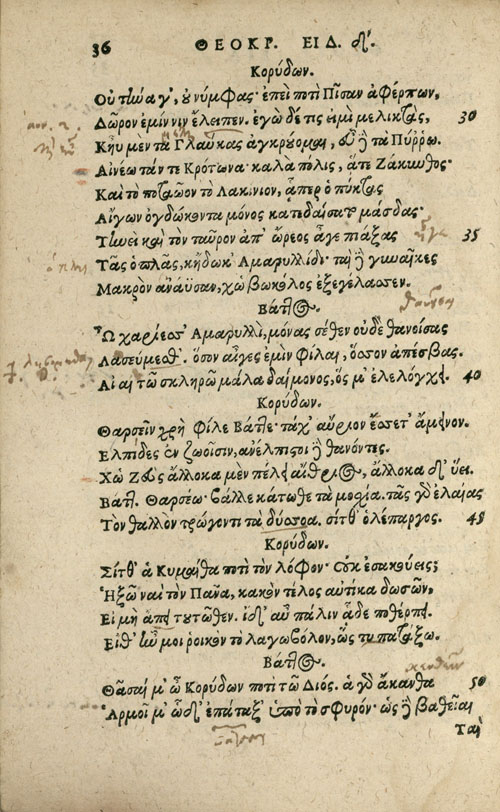 36 ΘΕΟΚΡ. ΕΙΔ. δ΄.
Κορύδων.
Οὐ τήνα γ', οὐ νύμφας· ἐπεὶ ποτὶ Πῖσαν ἀφέρπων,
Δῶρον ἐμίν νιν ἔλειπεν. ἐγὼ δέ τις εἰμὶ μελικτὰς, 30
Κἠυ μὲν τὰ Γλαύκας ἀγκρούομαι, εὖ δὲ τὰ Πύρρω.
Αἰνέω τάν τε Κρότωνα· καλὰ πόλις, ἅτε Ζάκυνθος·
Καὶ τὸ ποταῶον τὸ Λακίνιον, ἇπερ ὁ πύκτας
Αἴγων ὀγδώκοντα μόνος κατεδαίσατο μάσδας·
Τηνεὶ καὶ τὸν ταῦρον ἀπ' ὤρεος ἆγε πιάξας 35
Τᾶς ὁπλᾶς, κἤδωκ' Ἀμαρυλλίδι· ταὶ δὲ γυναῖκες
Μακρὸν ἀνάϋσαν, χὠ βωκόλος ἐξεγέλασσεν.
Βάττος.
Ὦ χαρίεσσ' Ἀμαρυλλὶ, μόνας σέθεν οὐδὲ θανοίσας
Λασεύμεσθ'. ὅσον αἶγες ἐμὶν φίλαι, ὅσσον ἀπέσβας.
Αἲ αἲ τῶ σκληρῶ μάλα δαίμονος, ὅς μ' ἐλελόγχει. 40
Κορύδων.
Θαρσεῖν χρὴ φίλε Βάττε· τάχ' αὔριον ἔσσετ' ἄμεινον.
Ἐλπίδες ἐν ζωοῖσιν, ἀνέλπιστοι δὲ θανόντες.
Χὠ Ζεὺς ἄλλοκα μὲν πέλει αἴθριος, ἄλλοκα δ' ὕει.
Βάττ. Θαρσέω· βάλλε κάτωθε τὰ μοσχία. τᾶς γὰρ ἐλαίας
Τὸν θαλλὸν τρώγοντι τὰ δύσσοα. σίτθ' ὁ λέπαργος. 45
Κορύδων.
Σίτθ' ἁ Κυμαίθα ποτὶ τὸν λόφον· οὐκ ἐσακούεις;
Ἡξῶ ναὶ τὸν Πᾶνα, κακὸν τέλος αὐτίκα δωσῶν,
Εἰ μὴ ἄπει τουτῶθεν. ἴδ' αὖ πάλιν ἅδε ποθέρπει.
Εἴθ' ἦν μοι ῥοικὸν τὸ λαγωβόλον, ὥς τυ παταξω.
Βάττος.
Θᾶσαί μ' ὦ Κορύδων ποτὶ τῶ Διός. ἁ γὰρ ἄκανθα 50
Ἁρμοῖ μ' ὧδ' ἐπάταξ' ὑπὸ τὸ σφυρόν· ὡς δὲ βαθεῖαι
Ταὶ